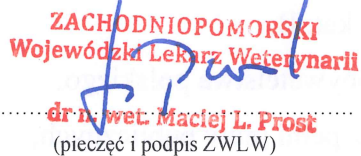 ZACHODNIOPOMORSKI
Wojewódzki Lekarz Weterynarii
dr n. wet. Maciej L. Prost
(pieczęć i podpis ZWLW)